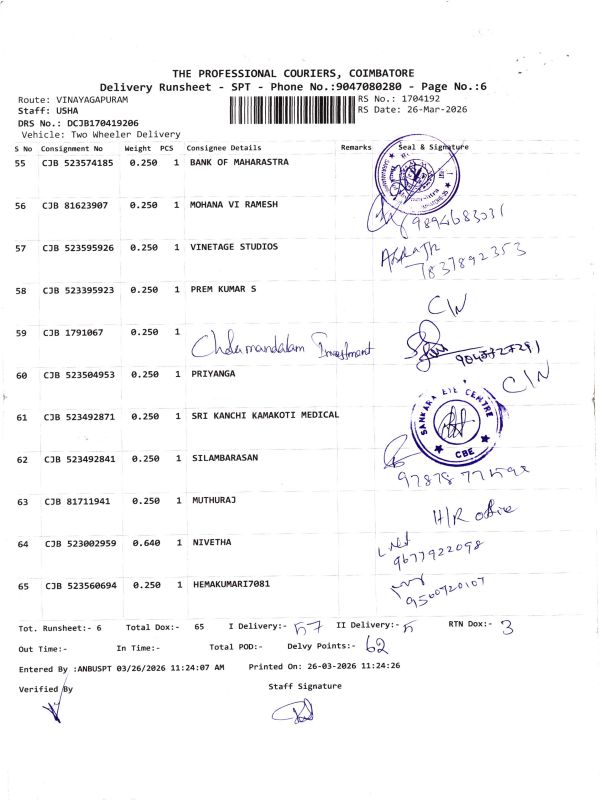 THE PROFESSIONAL COURIERS, COIMBATORE
Delivery Runsheet - SPT - Phone No.:9047080280 - Page No.:6
Route: VINAYAGAPURAM RS No.: 1704192
Staff: USHA RS Date: 26-Mar-2026
DRS No.: DCJB170419206
Vehicle: Two Wheeler Delivery
S No Consignment No Weight PCS Consignee Details Remarks Seal & Signature
55 CJB 523574185 0.250 1 BANK OF MAHARASTRA
56 CJB 81623907 0.250 1 MOHANA VI RAMESH
9894683031
57 CJB 523595926 0.250 1 VINETAGE STUDIOS
7837892353
58 CJB 523395923 0.250 1 PREM KUMAR S
C/N
59 CJB 1791067 0.250 1 Cholamandalam Investment
60 CJB 523504953 0.250 1 PRIYANGA
C/N
61 CJB 523492871 0.250 1 SRI KANCHI KAMAKOTI MEDICAL
SANKARA EYE CENTRE
CBE
62 CJB 523492841 0.250 1 SILAMBARASAN
63 CJB 81711941 0.250 1 MUTHURAJ
H/R office
64 CJB 523002959 0.640 1 NIVETHA
9677922098
65 CJB 523560694 0.250 1 HEMAKUMARI7081
9560720107
Tot. Runsheet:- 6 Total Dox:- 65 I Delivery:- 57 II Delivery:- 5 RTN Dox:- 3
Out Time:- In Time:- Total POD:- Delvy Points:- 62
Entered By :ANBUSPT 03/26/2026 11:24:07 AM Printed On: 26-03-2026 11:24:26
Verified By Staff Signature